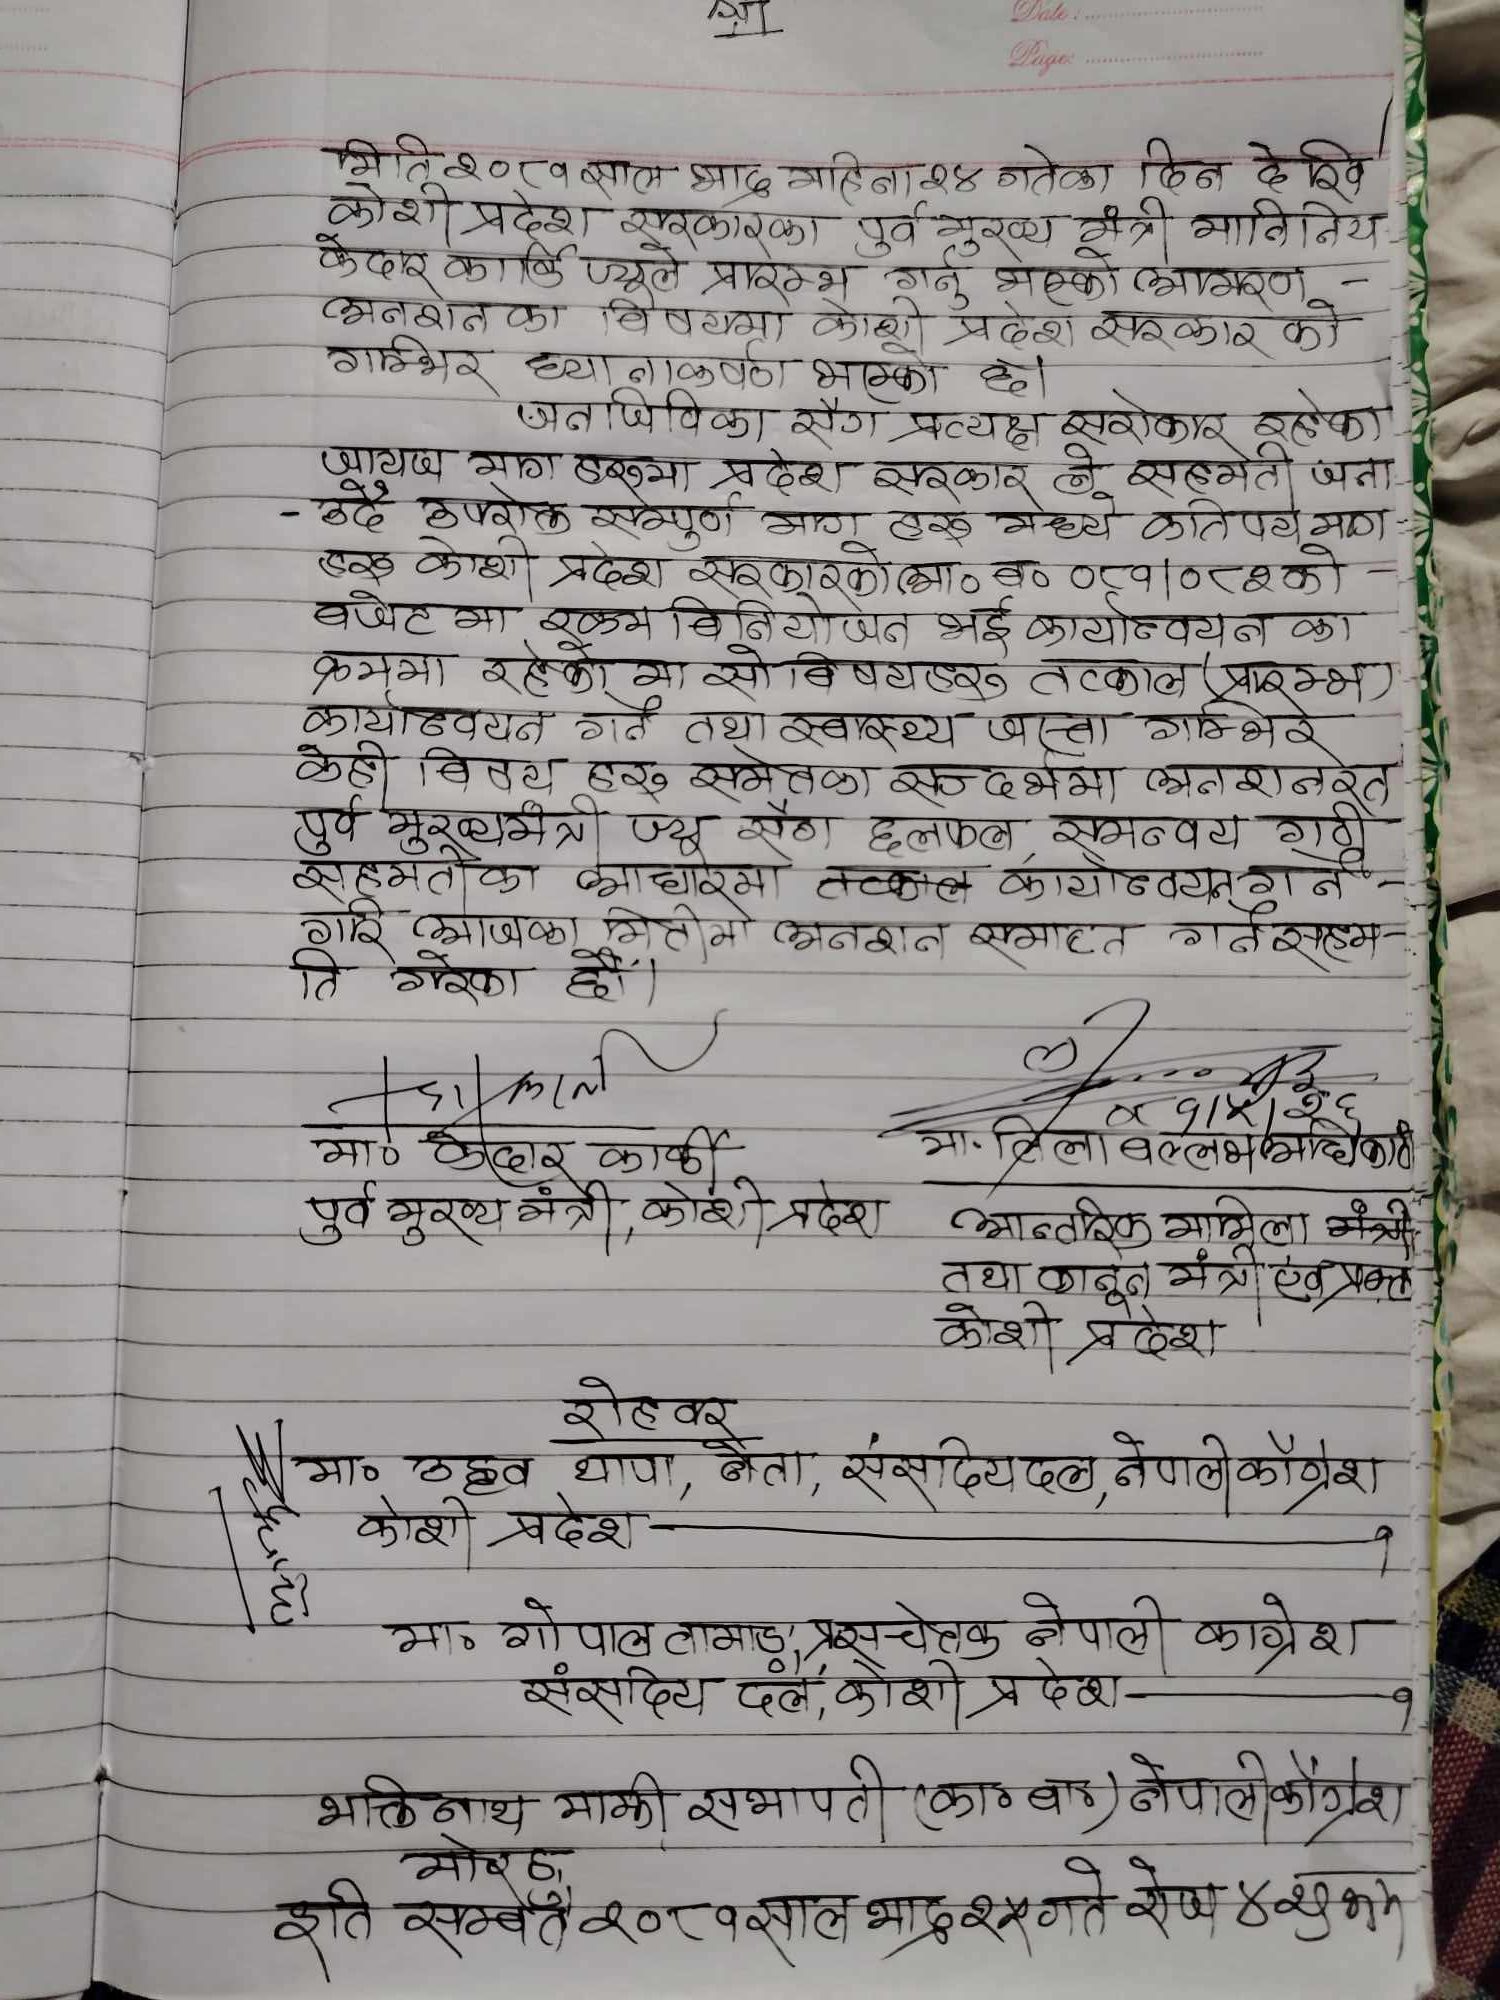 श्री
Date:
Page:
मिति २०८१ साल भाद्र महिना २४ गतेका दिन देखि
कोशी प्रदेश सरकारका पुर्व मुख्य मंत्री माननिय
केदार कार्कि ज्यूले प्रारम्भ गर्नु भएको आमरण -
अनशन का विषयमा कोशी प्रदेश सरकार को
गाम्भिर ध्यानाकर्षण भएको छ।
जनजिविका सँग प्रत्यक्ष सरोकार रहेका
जायज माग हरुमा प्रदेश सरकार ले सहमती जना-
- उदै उपरोक्त सम्पुर्ण माग हरु मध्ये कतिपय माग
हरु कोशी प्रदेश सरकारको आ० ब० ०८१।०८२ को -
बजेट मा रकम बिनियोजन भई कार्यान्वयन का
क्रममा रहेको मा सो बिषयहरु तत्काल (प्रारम्भ)
कार्यान्वयन गर्ने तथा स्वास्थ्य जस्ता गाम्भिर
केही बिषय हरु समेतका सन्दर्भमा अनशनरत
पुर्व मुख्यमंत्री ज्यू सँग छलफल, समन्वय गरी
सहमतीका आधारमा तत्काल कार्यान्वयन गर्ने -
गरि आजका मितीमा अनशन समाप्त गर्न सहम-
ति गरेका छौं।
०८१/५/२६
मा० केदार कार्की
मा. लिला बल्लभ अधिकारी
पुर्व मुख्य मंत्री, कोशी प्रदेश
आन्तरिक मामिला मंत्री
तथा कानून मंत्री एवं प्रवक्ता
कोशी प्रदेश
रोहवर
मा० उद्धव थापा, नेता, संसदियदल, नेपाली काँग्रेश
कोशी प्रदेश १
मा० गोपाल तामाङ, प्रमुख सचेतक नेपाली काग्रेश
संसदिय दल, कोशी प्रदेश १
भक्तिनाथ माझी सभापती (का० बा०) नेपाली काँग्रेश
मोरङ,
इति सम्बत २०८१ साल भाद्र २५ गते रोज ४ शुभम्